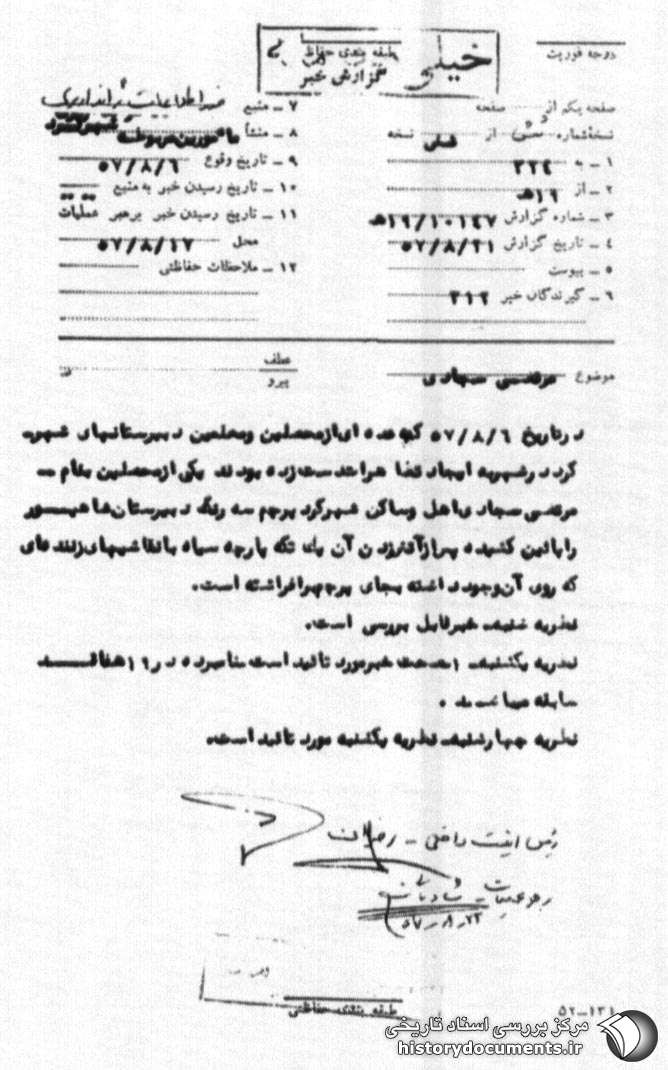 طبقه بندی حفاظتی
خیلی
گزارش خبر
درجه فوریت
صفحه یکم از صفحه
نسخه شماره از نسخه
۱ ـ به ۳۲۴
۲ ـ از ۱۹ﻫ
۳ ـ شماره گزارش ۱۹/۱۰۱۴۷ﻫ
۴ ـ تاریخ گزارش ۵۷/۸/۲۱
۵ ـ پیوست
۶ ـ گیرندگان خبر ۳۱۲
۷ ـ منبع
۸ ـ منشأ
۹ ـ تاریخ وقوع ۵۷/۸/۶
۱۰ ـ تاریخ رسیدن خبر به منبع
۱۱ ـ تاریخ رسیدن خبر برهبر عملیات
محل ۵۷/۸/۱۷
۱۲ ـ ملاحظات حفاظتی
موضوع مرتضی سجادی
عطف
پیرو
درتاریخ ۵۷/۸/۶ که عده ای ازمحصلین ومعلمین دبیرستانهای شهر
کرد درشهر به ایجاد تظاهرات دست زده بودند یکی ازمحصلین بنام ـ
مرتضی سجادی اهل وساکن شهرکرد پرچم سه رنگ دبیرستان شاهپور
را پائین کشیده پس ازآتش زدن آن یک تکه پارچه سیاه با نقاشیهای زننده ای
که روی آن وجود داشته بجای پرچم برافراشته است.
نظریه شنبه. خبر قابل بررسی است.
نظریه یکشنبه. ۱ـ صحت خبر مورد تائید است. نامبرده در ۱۹ﻫ فاقد
سابقه میباشد.
نظریه چهارشنبه. نظریه یکشنبه مورد تائید است.
رئیس امنیت داخلی ـ
رهبر عملیات ـ
۵۷-۸-۲۲
طبقه بندی حفاظتی
۵۲-۱۳۱
مرکز بررسی اسناد تاریخی
historydocuments.ir